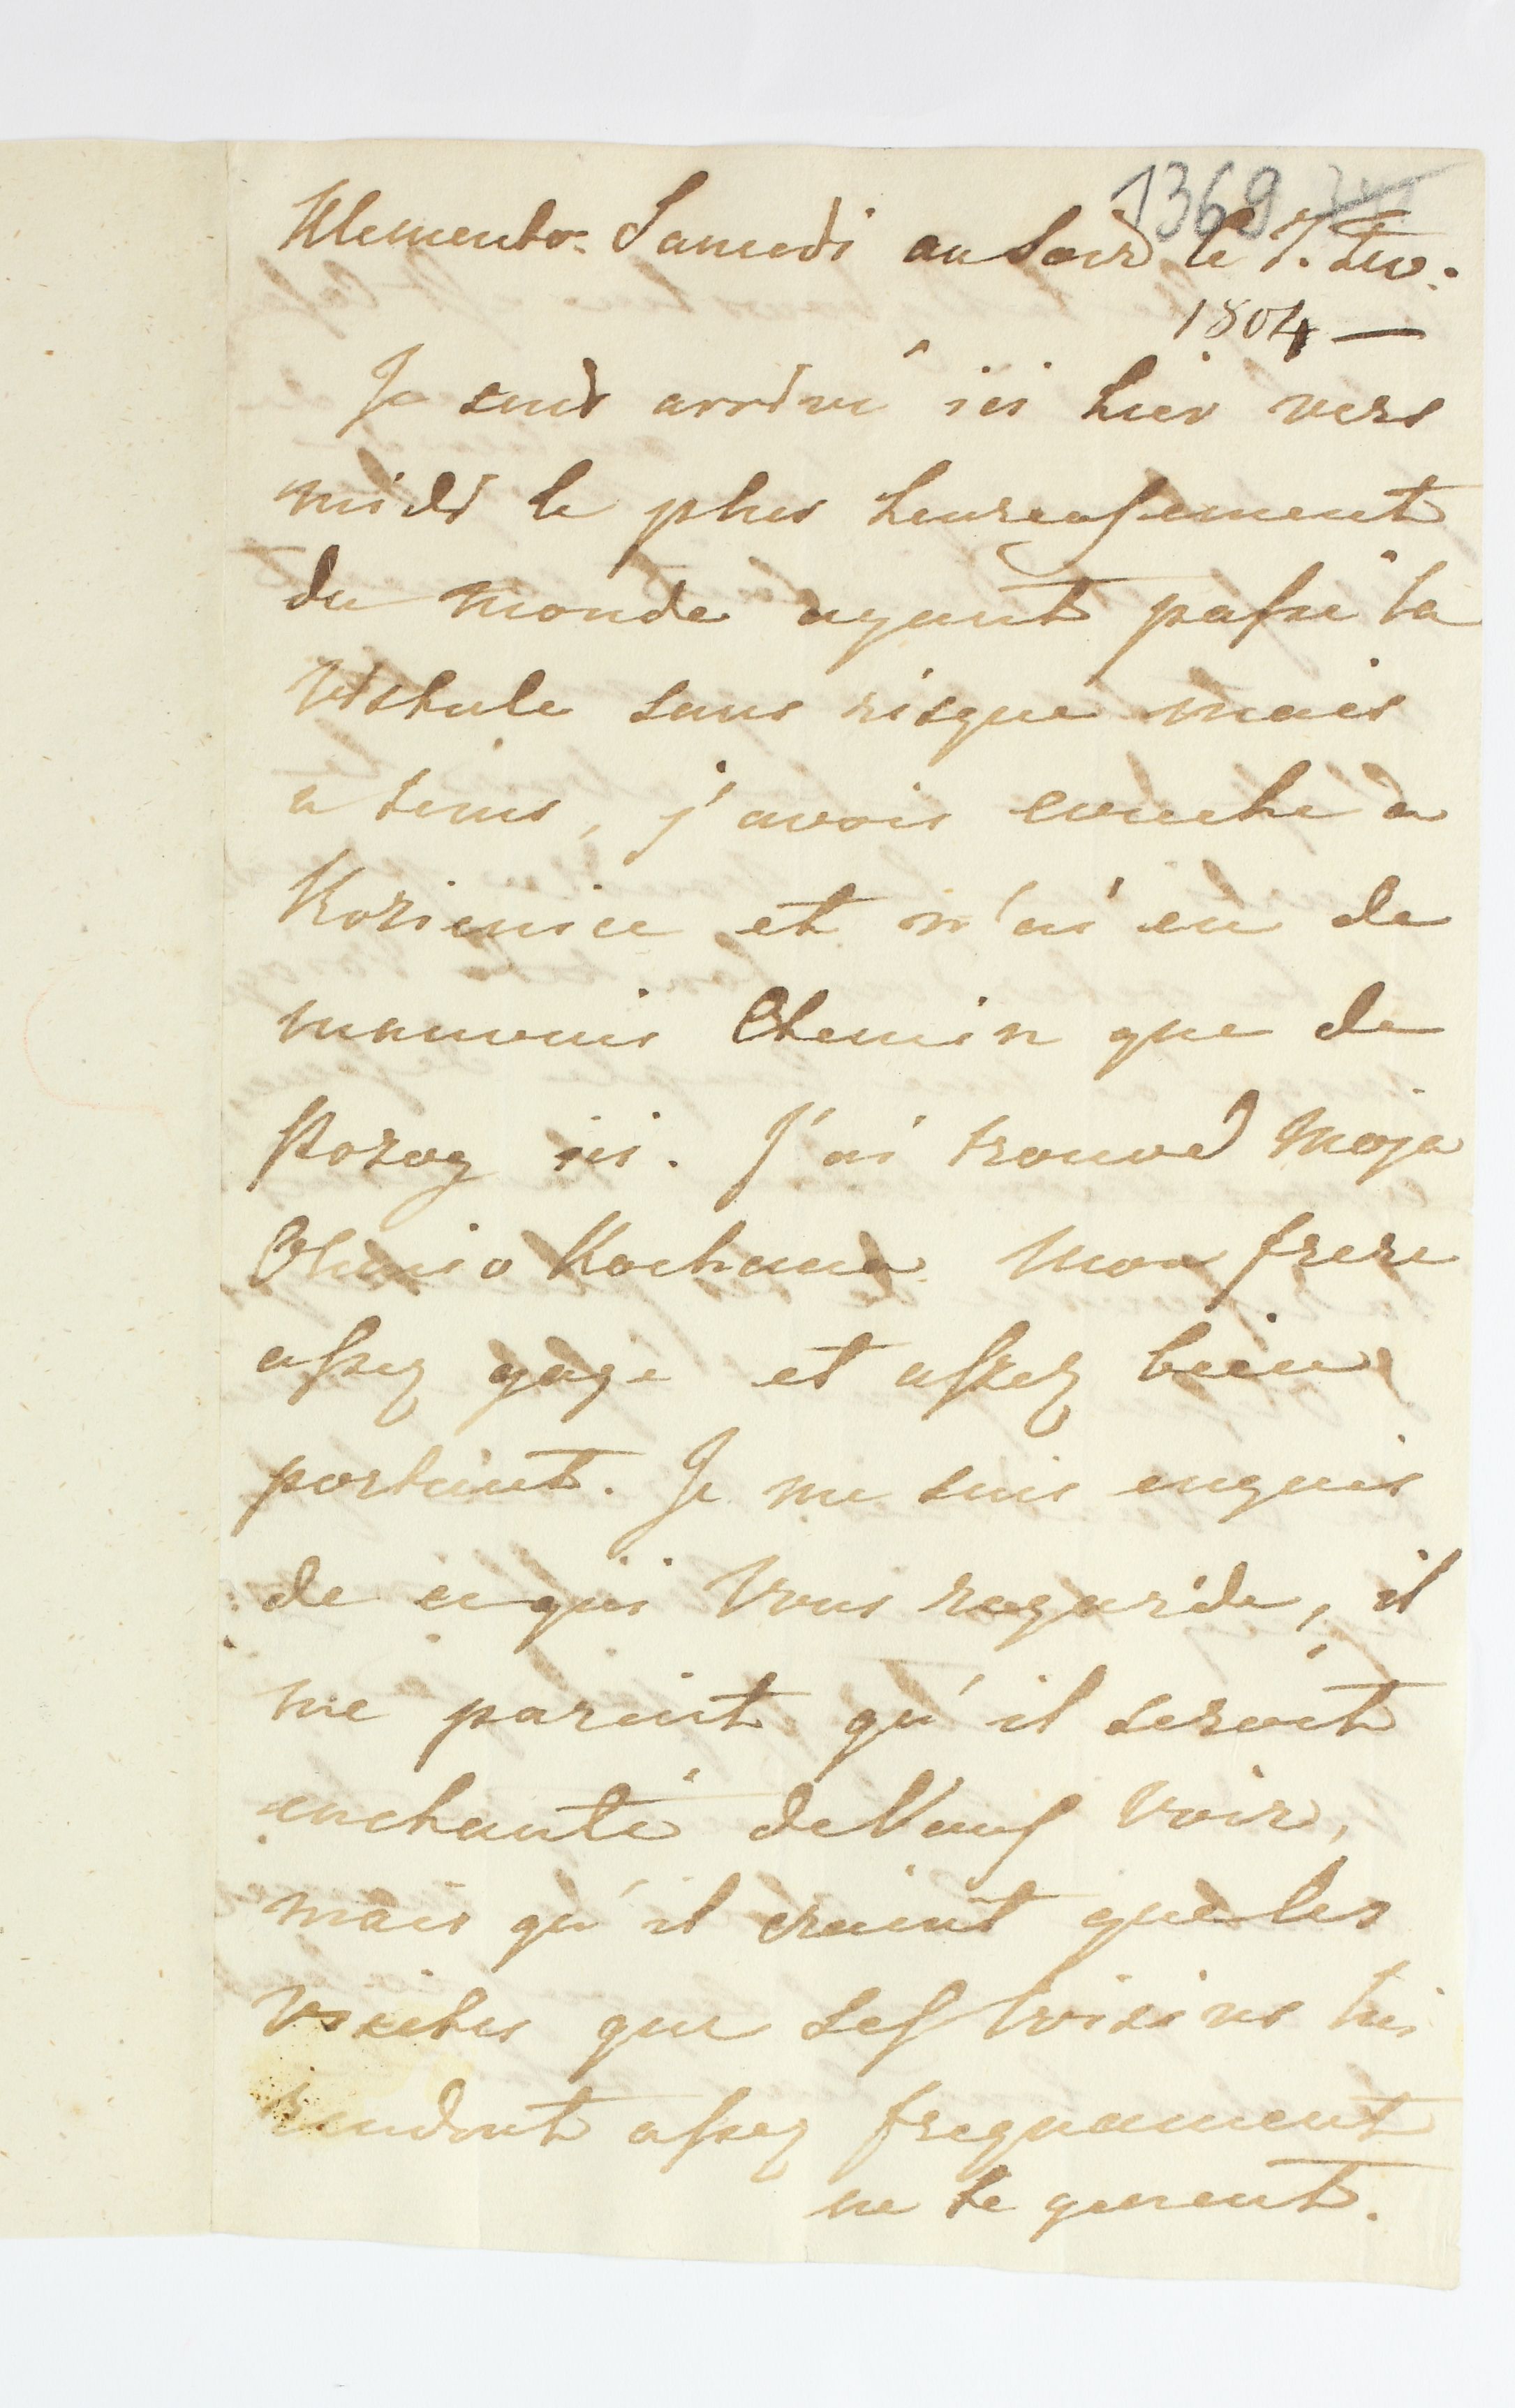 1369
Klemento: Samedi au Soir le 7. Fev:
1804 —
Je suis arrivé ici hier vers
midi le plus heureusement
du monde ayant passé la
Vistule sans risque mais
a tems, j'avois couché a
Kozienice et n'ai eu de
mauvais Chemin que de
ici. J'ai trouvé Moja
Kochana Mon frere
assez gaye et assez bien
portant. Je me suis enquis
de ce qui Vous regarde, il
me paroit qu'il seroit
enchanté de Vous Voir,
mais qu'il craint que les
visites que ses Voisins lui
rendent assez frequament
ne te genent.